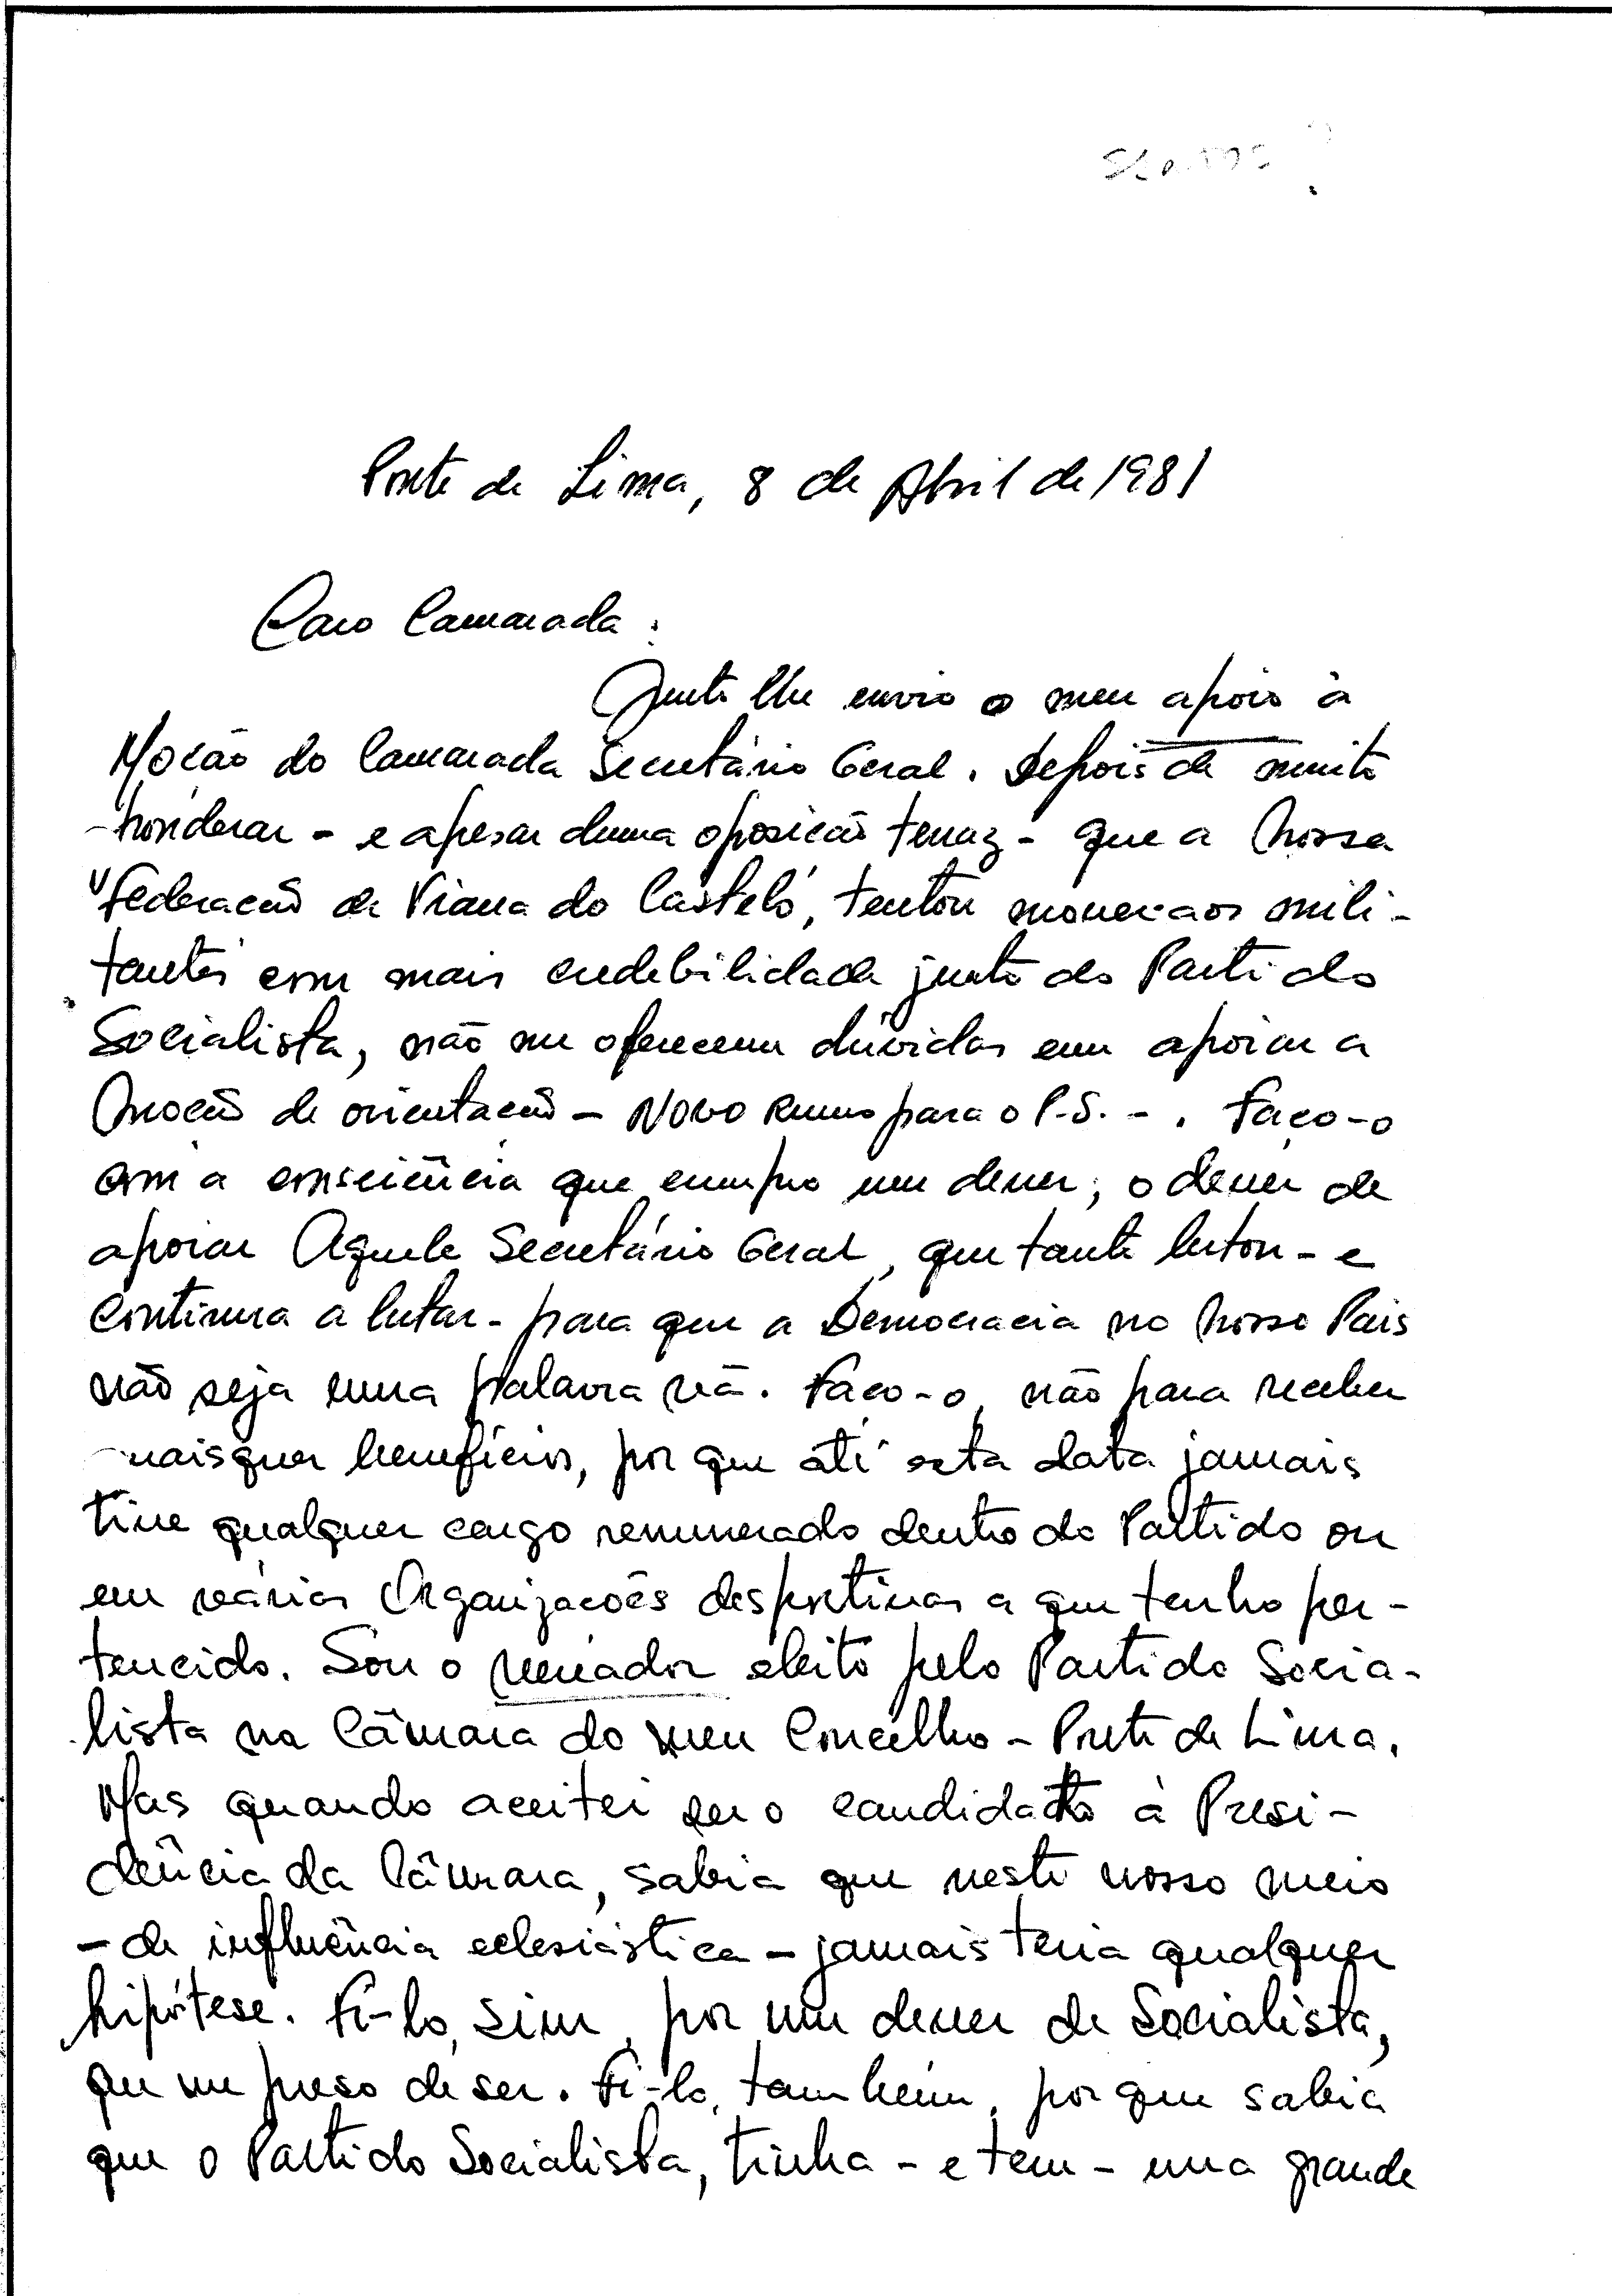 Ponte de Lima, 8 de Abril de 1981
Caro Camarada:
Junto lhe envio o meu apoio à
Moção do Camarada Secretário Geral. Depois de muito
ponderar - e apesar duma oposição tenaz - que a nossa
Federação de Viana do Castelo, tentou mover aos mili-
tantes com mais credebilidade junto do Partido
Socialista, não me oferecem dúvidas em apoiar a
Moção de orientação - Novo Rumo para o P.S. - . Faço-o
com a consciência que cumpro um dever; o dever de
apoiar Aquele Secretário Geral, que tanto lutou - e
continua a lutar - para que a Democracia no nosso País
não seja uma palavra vã. Faço-o, não para receber
quaisquer benefícios, por que até esta data jamais
tive qualquer cargo remunerado dentro do Partido ou
em várias Organizações desportivas a que tenho per-
tencido. Sou o vereador eleito pelo Partido Socia-
lista na Câmara do meu Concelho - Ponte de Lima.
Mas quando aceitei ser o candidato à Presi-
dência da Câmara, sabia que neste nosso meio
- de influência eclesiástica - jamais teria qualquer
hipótese. Fi-lo, sim, por um dever de Socialista,
que me preso de ser. Fi-lo, também, por que sabia
que o Partido Socialista, tinha - e tem - uma grande